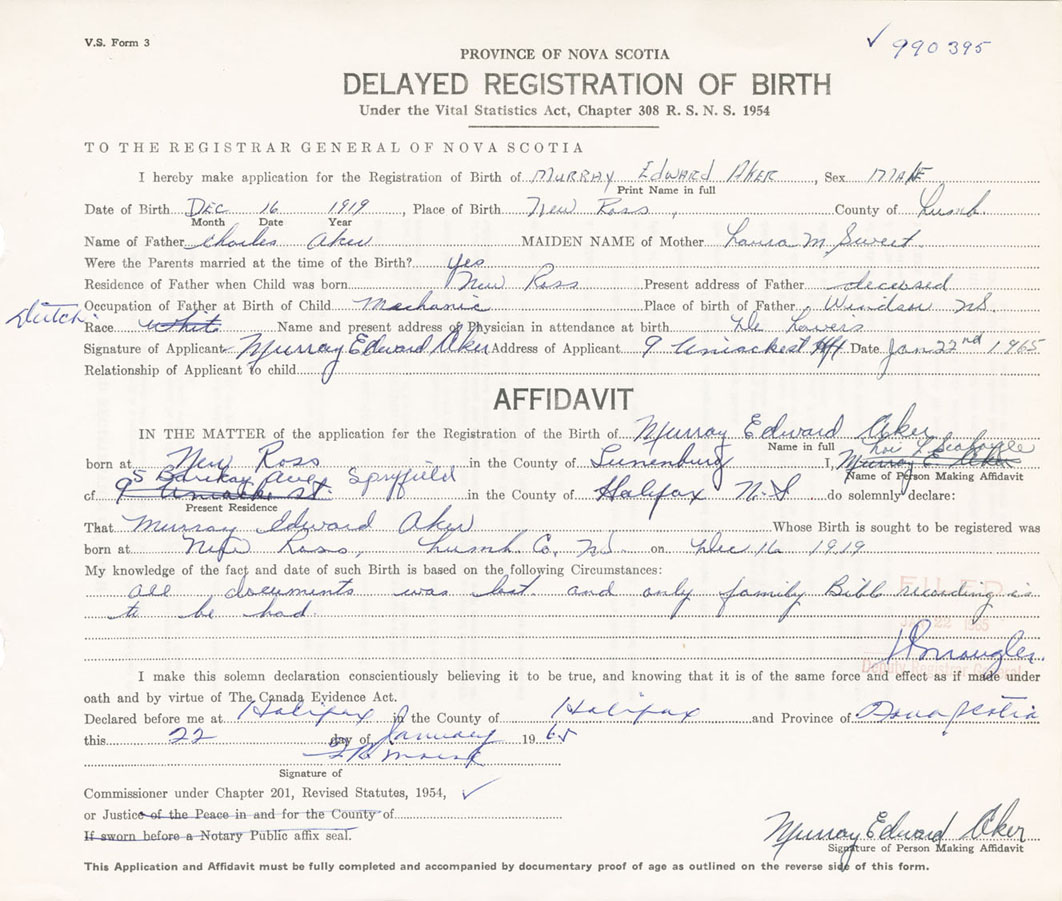 V.S. Form 3
✓ 990395
PROVINCE OF NOVA SCOTIA
DELAYED REGISTRATION OF BIRTH
Under the Vital Statistics Act, Chapter 308 R. S. N. S. 1954
TO THE REGISTRAR GENERAL OF NOVA SCOTIA
I hereby make application for the Registration of Birth of MURRAY EDWARD AKER, Sex MALE
Print Name in full
Date of Birth DEC 16 1919, Place of Birth New Ross, County of Lunb.
Month Date Year
Name of Father Charles Aker MAIDEN NAME of Mother Laura M. Sweet
Were the Parents married at the time of the Birth? yes
Residence of Father when Child was born New Ross Present address of Father deceased
Occupation of Father at Birth of Child Mechanic Place of birth of Father Windsor N.S.
Dutch. Race White Name and present address of Physician in attendance at birth
Signature of Applicant Murray Edward Aker Address of Applicant 9 Uniacke St Hfx Date Jan 22nd 1965
Relationship of Applicant to child
AFFIDAVIT
IN THE MATTER of the application for the Registration of the Birth of Murray Edward Aker
Name in full
born at New Ross in the County of Lunenburg I, Murray E. Aker
Name of Person Making Affidavit
5 Ave Spryfield
of 9 Uniacke St. in the County of Halifax N.S. do solemnly declare:
Present Residence
That Murray Edward Aker Whose Birth is sought to be registered was
born at New Ross, Lunb. Co. N.S. on Dec 16 1919
My knowledge of the fact and date of such Birth is based on the following Circumstances:
All documents was lost and only family Bible recording is
to be had.
FILED
JAN 22 1965
Deputy Registrar General
I make this solemn declaration conscientiously believing it to be true, and knowing that it is of the same force and effect as if made under
oath and by virtue of The Canada Evidence Act.
Declared before me at Halifax in the County of Halifax and Province of Nova Scotia
this 22 day of January 1965
Signature of
Commissioner under Chapter 201, Revised Statutes, 1954, ✓
or Justice of the Peace in and for the County of
If sworn before a Notary Public affix seal.
Murray Edward Aker
Signature of Person Making Affidavit
This Application and Affidavit must be fully completed and accompanied by documentary proof of age as outlined on the reverse side of this form.